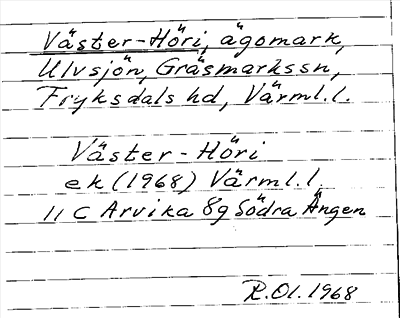 Väster-Höri, ägomark,
Ulvsjön, Gräsmarkssn,
Fryksdals hd, Värml.l.
Väster-Höri
ek (1968) Värml.l.
11 C Arvika 8g Södra Ängen
R.Ol. 1968